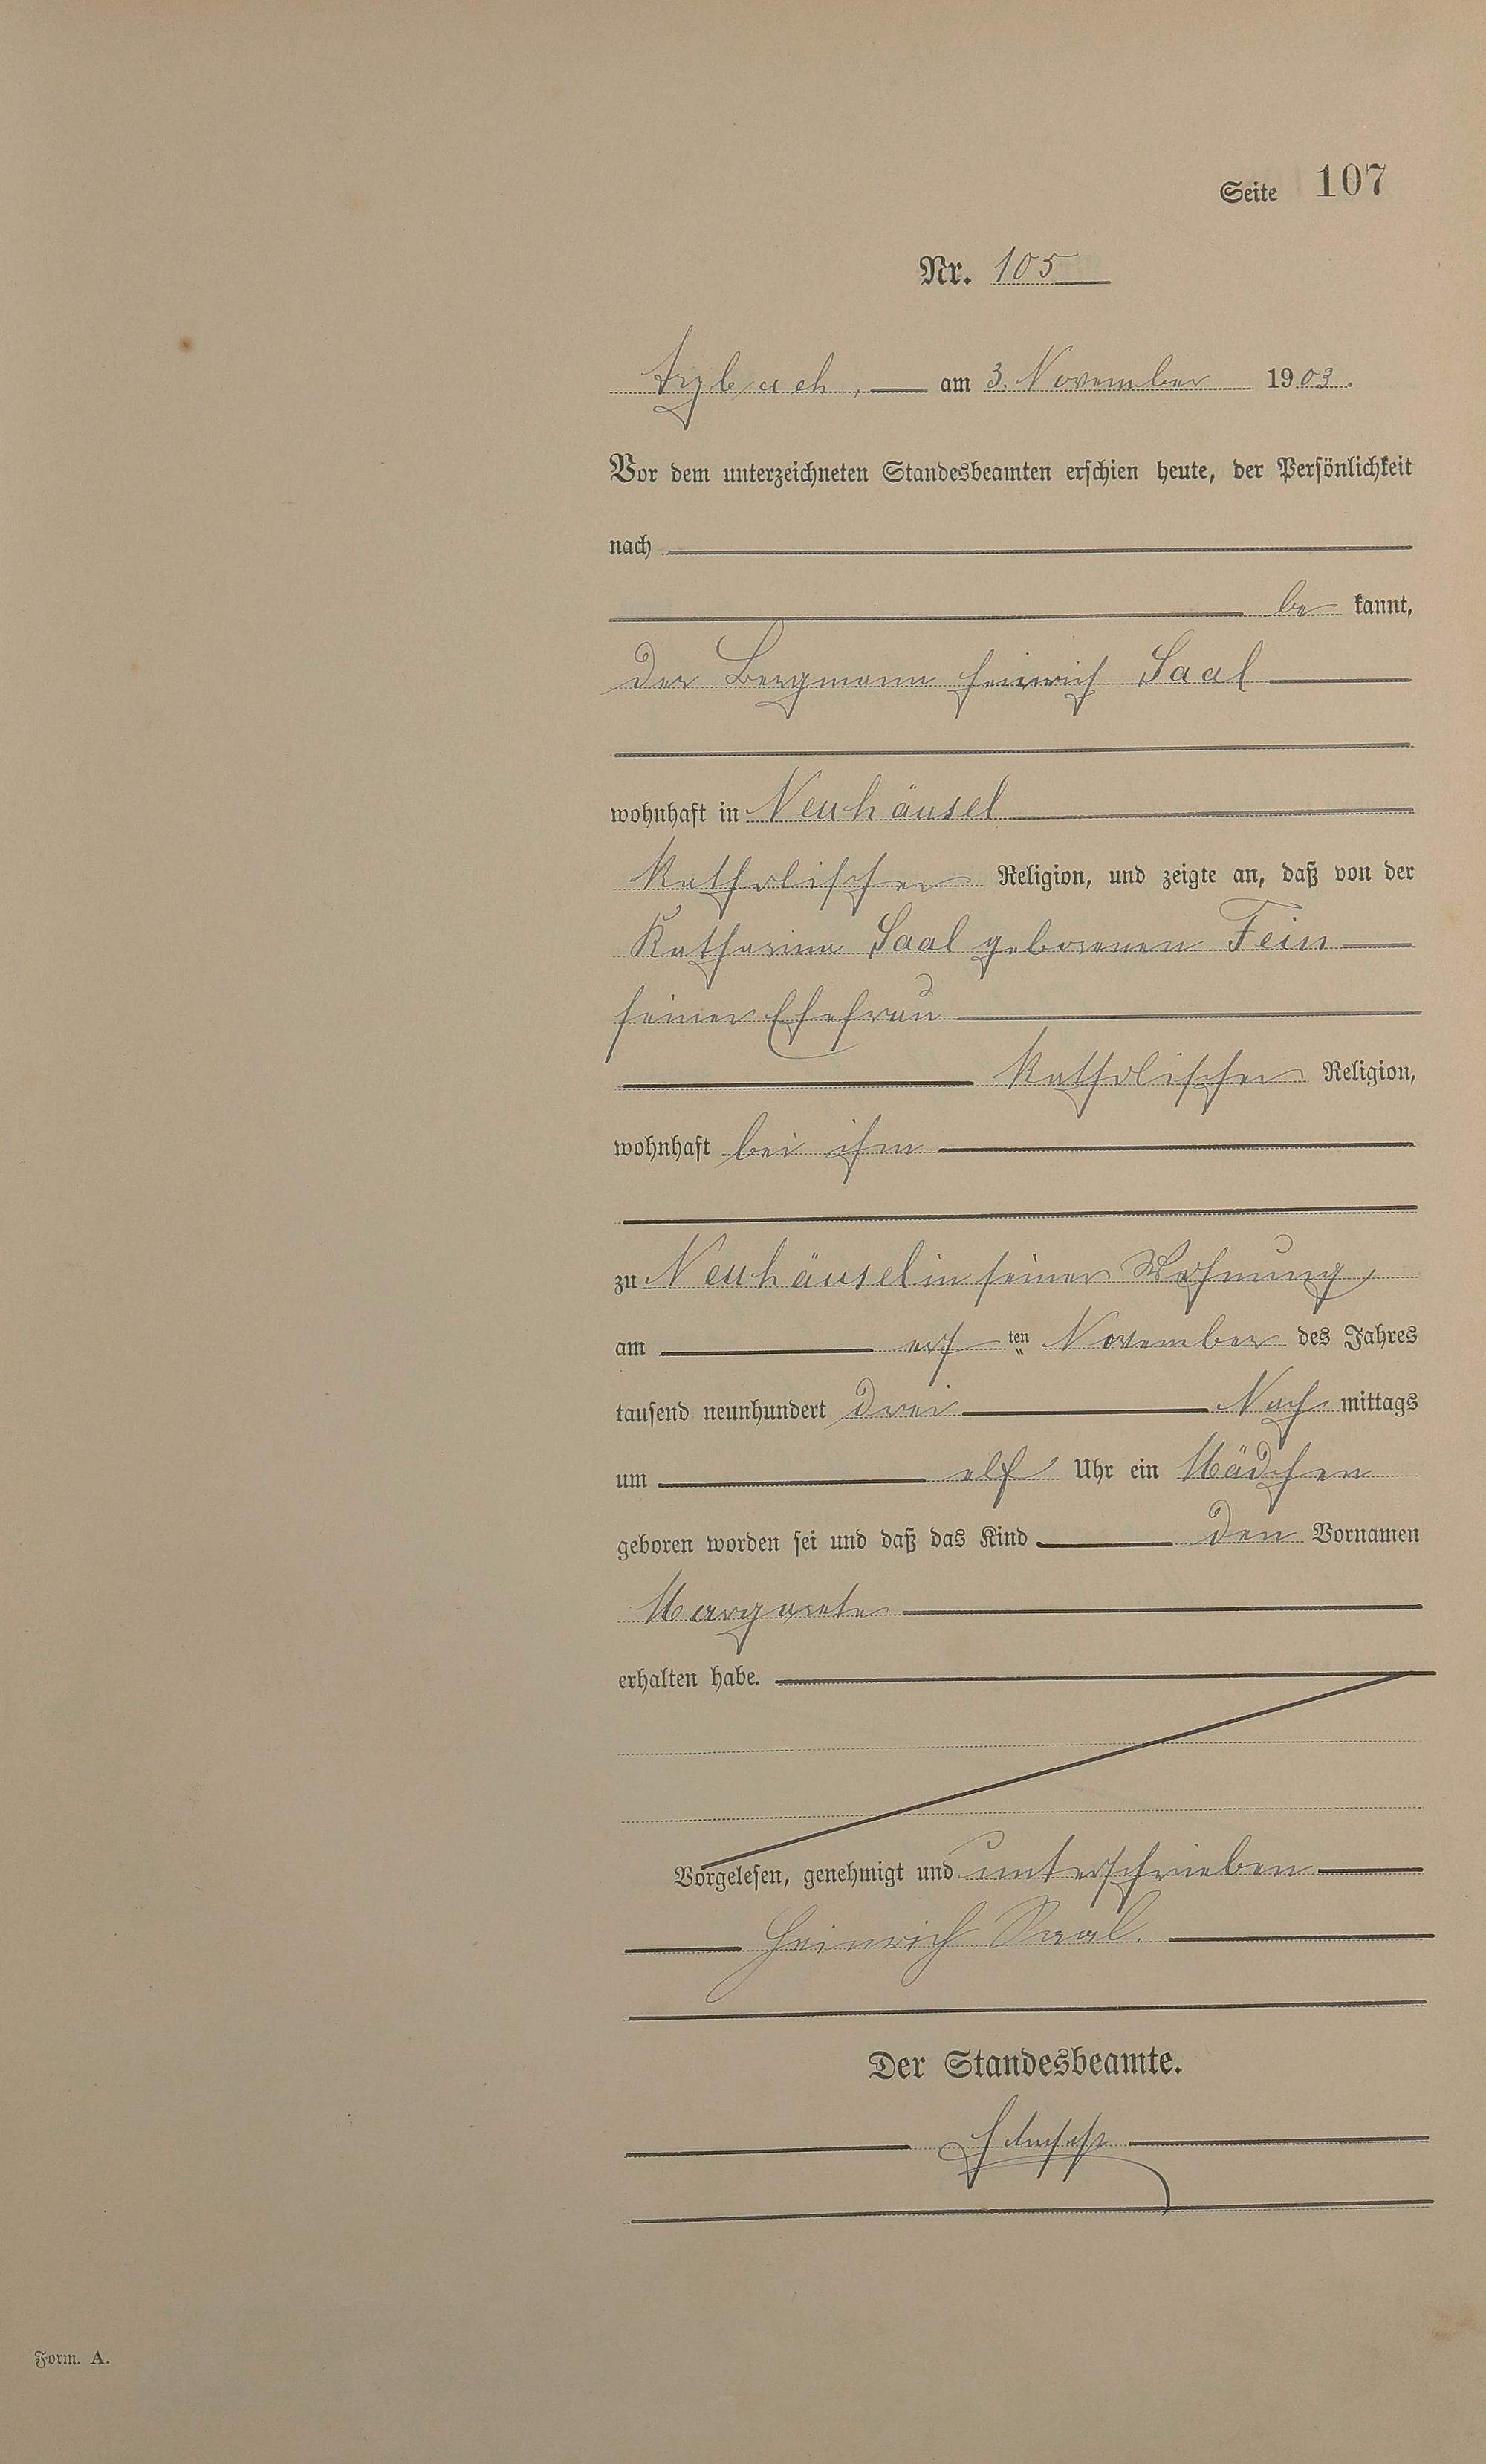 Seite 107
Nr. 105
Arzbach, am 3. November 1903.
Vor dem unterzeichneten Standesbeamten erschien heute, der Persönlichkeit
nach
be kannt,
der Bergmann Heinrich Saal
wohnhaft in Neuhäusel
katholischer Religion, und zeigte an, daß von der
Katharina Saal geborenen Fein
seiner Ehefrau
katholischer Religion,
wohnhaft bei ihm
zu Neuhäusel in seiner Wohnung,
am ersten November des Jahres
tausend neunhundert drei Nachmittags
um elf Uhr ein Mädchen
geboren worden sei und daß das Kind den Vornamen
Margareta
erhalten habe.
Vorgelesen, genehmigt und unterschrieben
Heinrich Saal.
Der Standesbeamte.
Form. A.